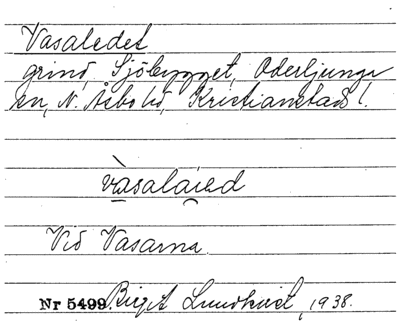 Vasaledet
grind, Sjöbygget, Oderljunga
sn, N. Åsbo hd, Kristianstads l.
vàsalaied
Vid Vasarna.
Nr 5499. Birgit Lundkvist, 1938.